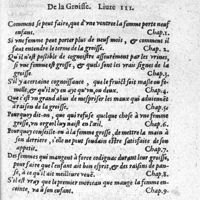 De la Groisse. Liure III.
Comment se peut faire, que d'vne ventree la femme porte neuf
enfans. Chap. 1.
Si vne femme peut porter plus de neuf mois, & comment il
faut entendre le terme de la groisse. Chap. 2.
Qu'il n'est possible de cognoistre asseurément par les vrines,
si vne femme est grosse, & quels sont les vrais signes de
la grosse. Chap. 3.
S'il y a certaine cognoissance, que le fruict soit masle ou fe-
melle, & qu'il n'y en ayt qu'vn, ou deux. Chap. 4.
Que c'est vn grand abus de mespriser les maux qui aduiennent
à raison de la groisse. Chap. 5.
Pourquoy dit-on, que qui refuse quelque chose à vne femme
grosse, vn orgeol luy naist en l'œil. Chap. 6.
Pourquoy conseille-on à la femme grosse, de mettre la main à
son derriere, s'elle ne peut soudain estre satisfaicte de son
appetit. Chap. 7.
Des femmes qui mangent à force codignac durant leur groisse,
pour faire que l'enfant ait bon esprit, & des raisons de pan-
se, à ce qu'il ait meilleure veuë. Chap. 8.
S'il est vray que le premier morceau que mange la femme en-
ceinte, va à son enfant. Chap. 9.